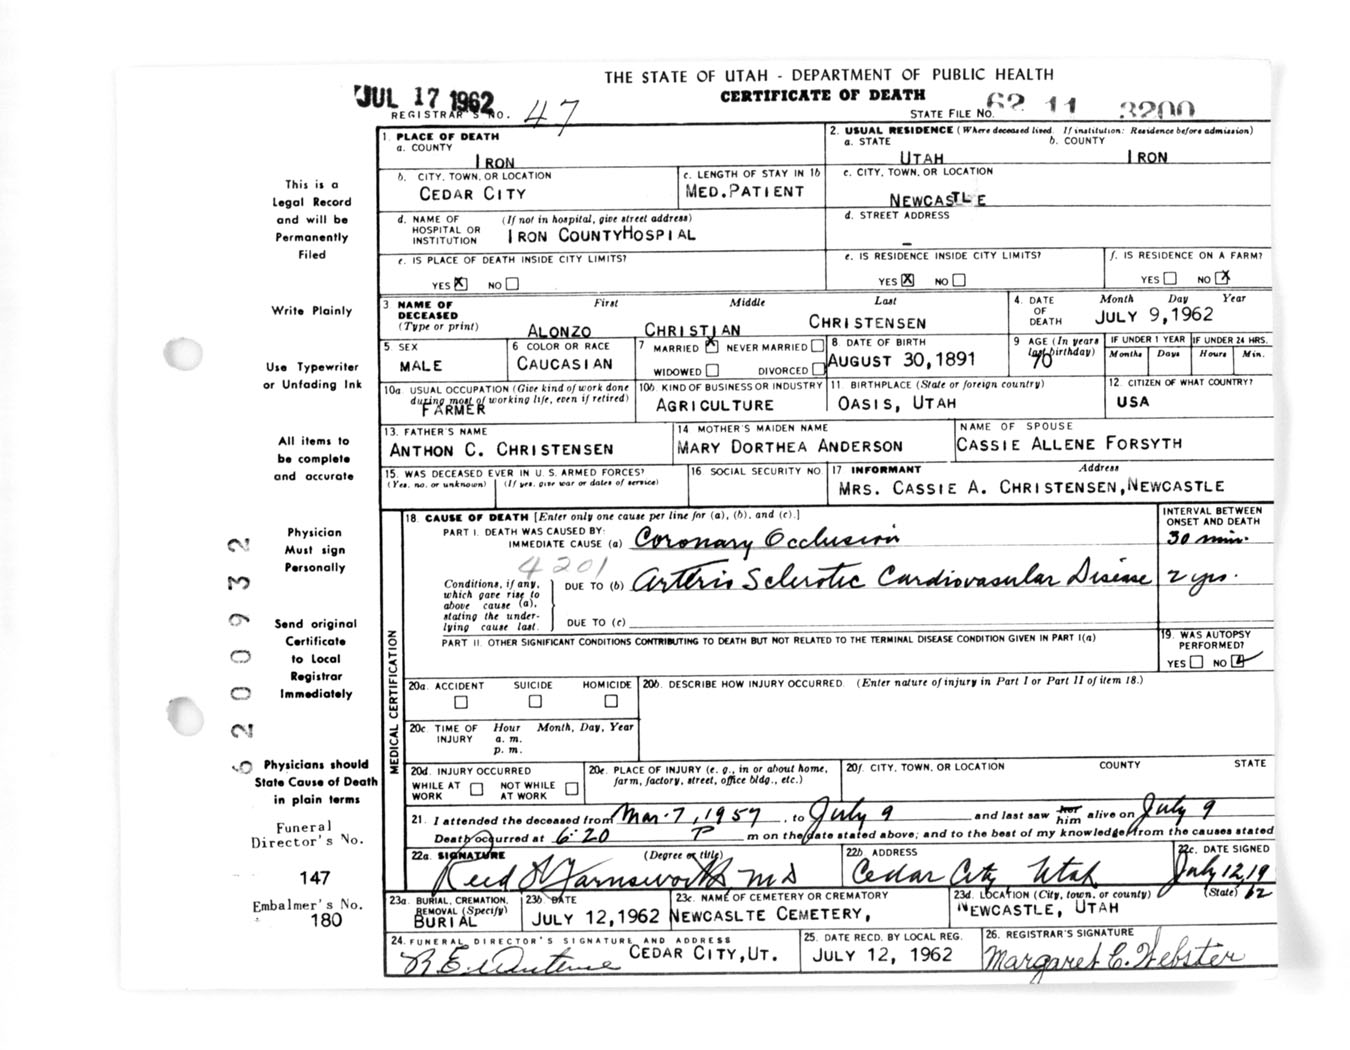 THE STATE OF UTAH - DEPARTMENT OF PUBLIC HEALTH
CERTIFICATE OF DEATH
JUL 17 1962
REGISTRAR'S NO. 47
STATE FILE NO. 62 11 3200
1. PLACE OF DEATH
a. COUNTY
IRON
2. USUAL RESIDENCE (Where deceased lived. If institution: Residence before admission)
a. STATE b. COUNTY
UTAH IRON
b. CITY, TOWN, OR LOCATION
CEDAR CITY
c. LENGTH OF STAY IN 1b
MED. PATIENT
c. CITY, TOWN, OR LOCATION
NEWCASTLE
d. NAME OF HOSPITAL OR INSTITUTION (If not in hospital, give street address)
IRON COUNTYHOSPIAL
d. STREET ADDRESS
-
e. IS PLACE OF DEATH INSIDE CITY LIMITS?
YES X NO
e. IS RESIDENCE INSIDE CITY LIMITS?
YES X NO
f. IS RESIDENCE ON A FARM?
YES NO X
3 NAME OF DECEASED (Type or print)
First Middle Last
ALONZO CHRISTIAN CHRISTENSEN
4. DATE OF DEATH
Month Day Year
JULY 9,1962
5. SEX
MALE
6 COLOR OR RACE
CAUCASIAN
7 MARRIED X NEVER MARRIED
WIDOWED DIVORCED
8 DATE OF BIRTH
AUGUST 30,1891
9 AGE (In years last birthday)
70
IF UNDER 1 YEAR
Months Days
IF UNDER 24 HRS.
Hours Min.
10a. USUAL OCCUPATION (Give kind of work done during most of working life, even if retired)
FARMER
10b. KIND OF BUSINESS OR INDUSTRY
AGRICULTURE
11. BIRTHPLACE (State or foreign country)
OASIS, UTAH
12. CITIZEN OF WHAT COUNTRY?
USA
13. FATHER'S NAME
ANTHON C. CHRISTENSEN
14 MOTHER'S MAIDEN NAME
MARY DORTHEA ANDERSON
NAME OF SPOUSE
CASSIE ALLENE FORSYTH
15. WAS DECEASED EVER IN U. S. ARMED FORCES?
(Yes, no, or unknown) (If yes, give war or dates of service)
16 SOCIAL SECURITY NO.
17 INFORMANT Address
MRS. CASSIE A. CHRISTENSEN,NEWCASTLE
MEDICAL CERTIFICATION
18. CAUSE OF DEATH [Enter only one cause per line for (a), (b), and (c).]
INTERVAL BETWEEN ONSET AND DEATH
PART I. DEATH WAS CAUSED BY:
IMMEDIATE CAUSE (a) Coronary Occlusion 30 min.
4201
Conditions, if any, which gave rise to above cause (a), stating the underlying cause last.
DUE TO (b) Arterio Sclerotic Cardiovasular Disease 2 yrs.
DUE TO (c)
PART II. OTHER SIGNIFICANT CONDITIONS CONTRIBUTING TO DEATH BUT NOT RELATED TO THE TERMINAL DISEASE CONDITION GIVEN IN PART I(a)
19. WAS AUTOPSY PERFORMED?
YES NO
20a. ACCIDENT SUICIDE HOMICIDE
20b. DESCRIBE HOW INJURY OCCURRED. (Enter nature of injury in Part I or Part II of item 18.)
20c. TIME OF INJURY
Hour Month, Day, Year
a. m.
p. m.
20d. INJURY OCCURRED
WHILE AT WORK NOT WHILE AT WORK
20e. PLACE OF INJURY (e. g., in or about home, farm, factory, street, office bldg., etc.)
20f. CITY, TOWN, OR LOCATION COUNTY STATE
21. I attended the deceased from Mar. 7, 1957, to July 9 and last saw her him alive on July 9
Death occurred at 6:20 P m on the date stated above; and to the best of my knowledge, from the causes stated
22a. SIGNATURE (Degree or title)
Reed W Farnsworth, MD
22b ADDRESS
Cedar City Utah
22c. DATE SIGNED
July 12, 19 62
23a. BURIAL, CREMATION, REMOVAL (Specify)
BURIAL
23b DATE
JULY 12,1962
23c. NAME OF CEMETERY OR CREMATORY
NEWCASLTE CEMETERY,
23d. LOCATION (City, town, or county) (State)
NEWCASTLE, UTAH
24. FUNERAL DIRECTOR'S SIGNATURE AND ADDRESS
CEDAR CITY,UT.
25. DATE RECD. BY LOCAL REG.
JULY 12, 1962
26. REGISTRAR'S SIGNATURE
Margaret C. Webster
This is a
Legal Record
and will be
Permanently
Filed
Write Plainly
Use Typewriter
or Unfading Ink
All items to
be complete
and accurate
Physician
Must sign
Personally
Send original
Certificate
to Local
Registrar
Immediately
Physicians should
State Cause of Death
in plain terms
Funeral
Director's No.
147
Embalmer's No.
180